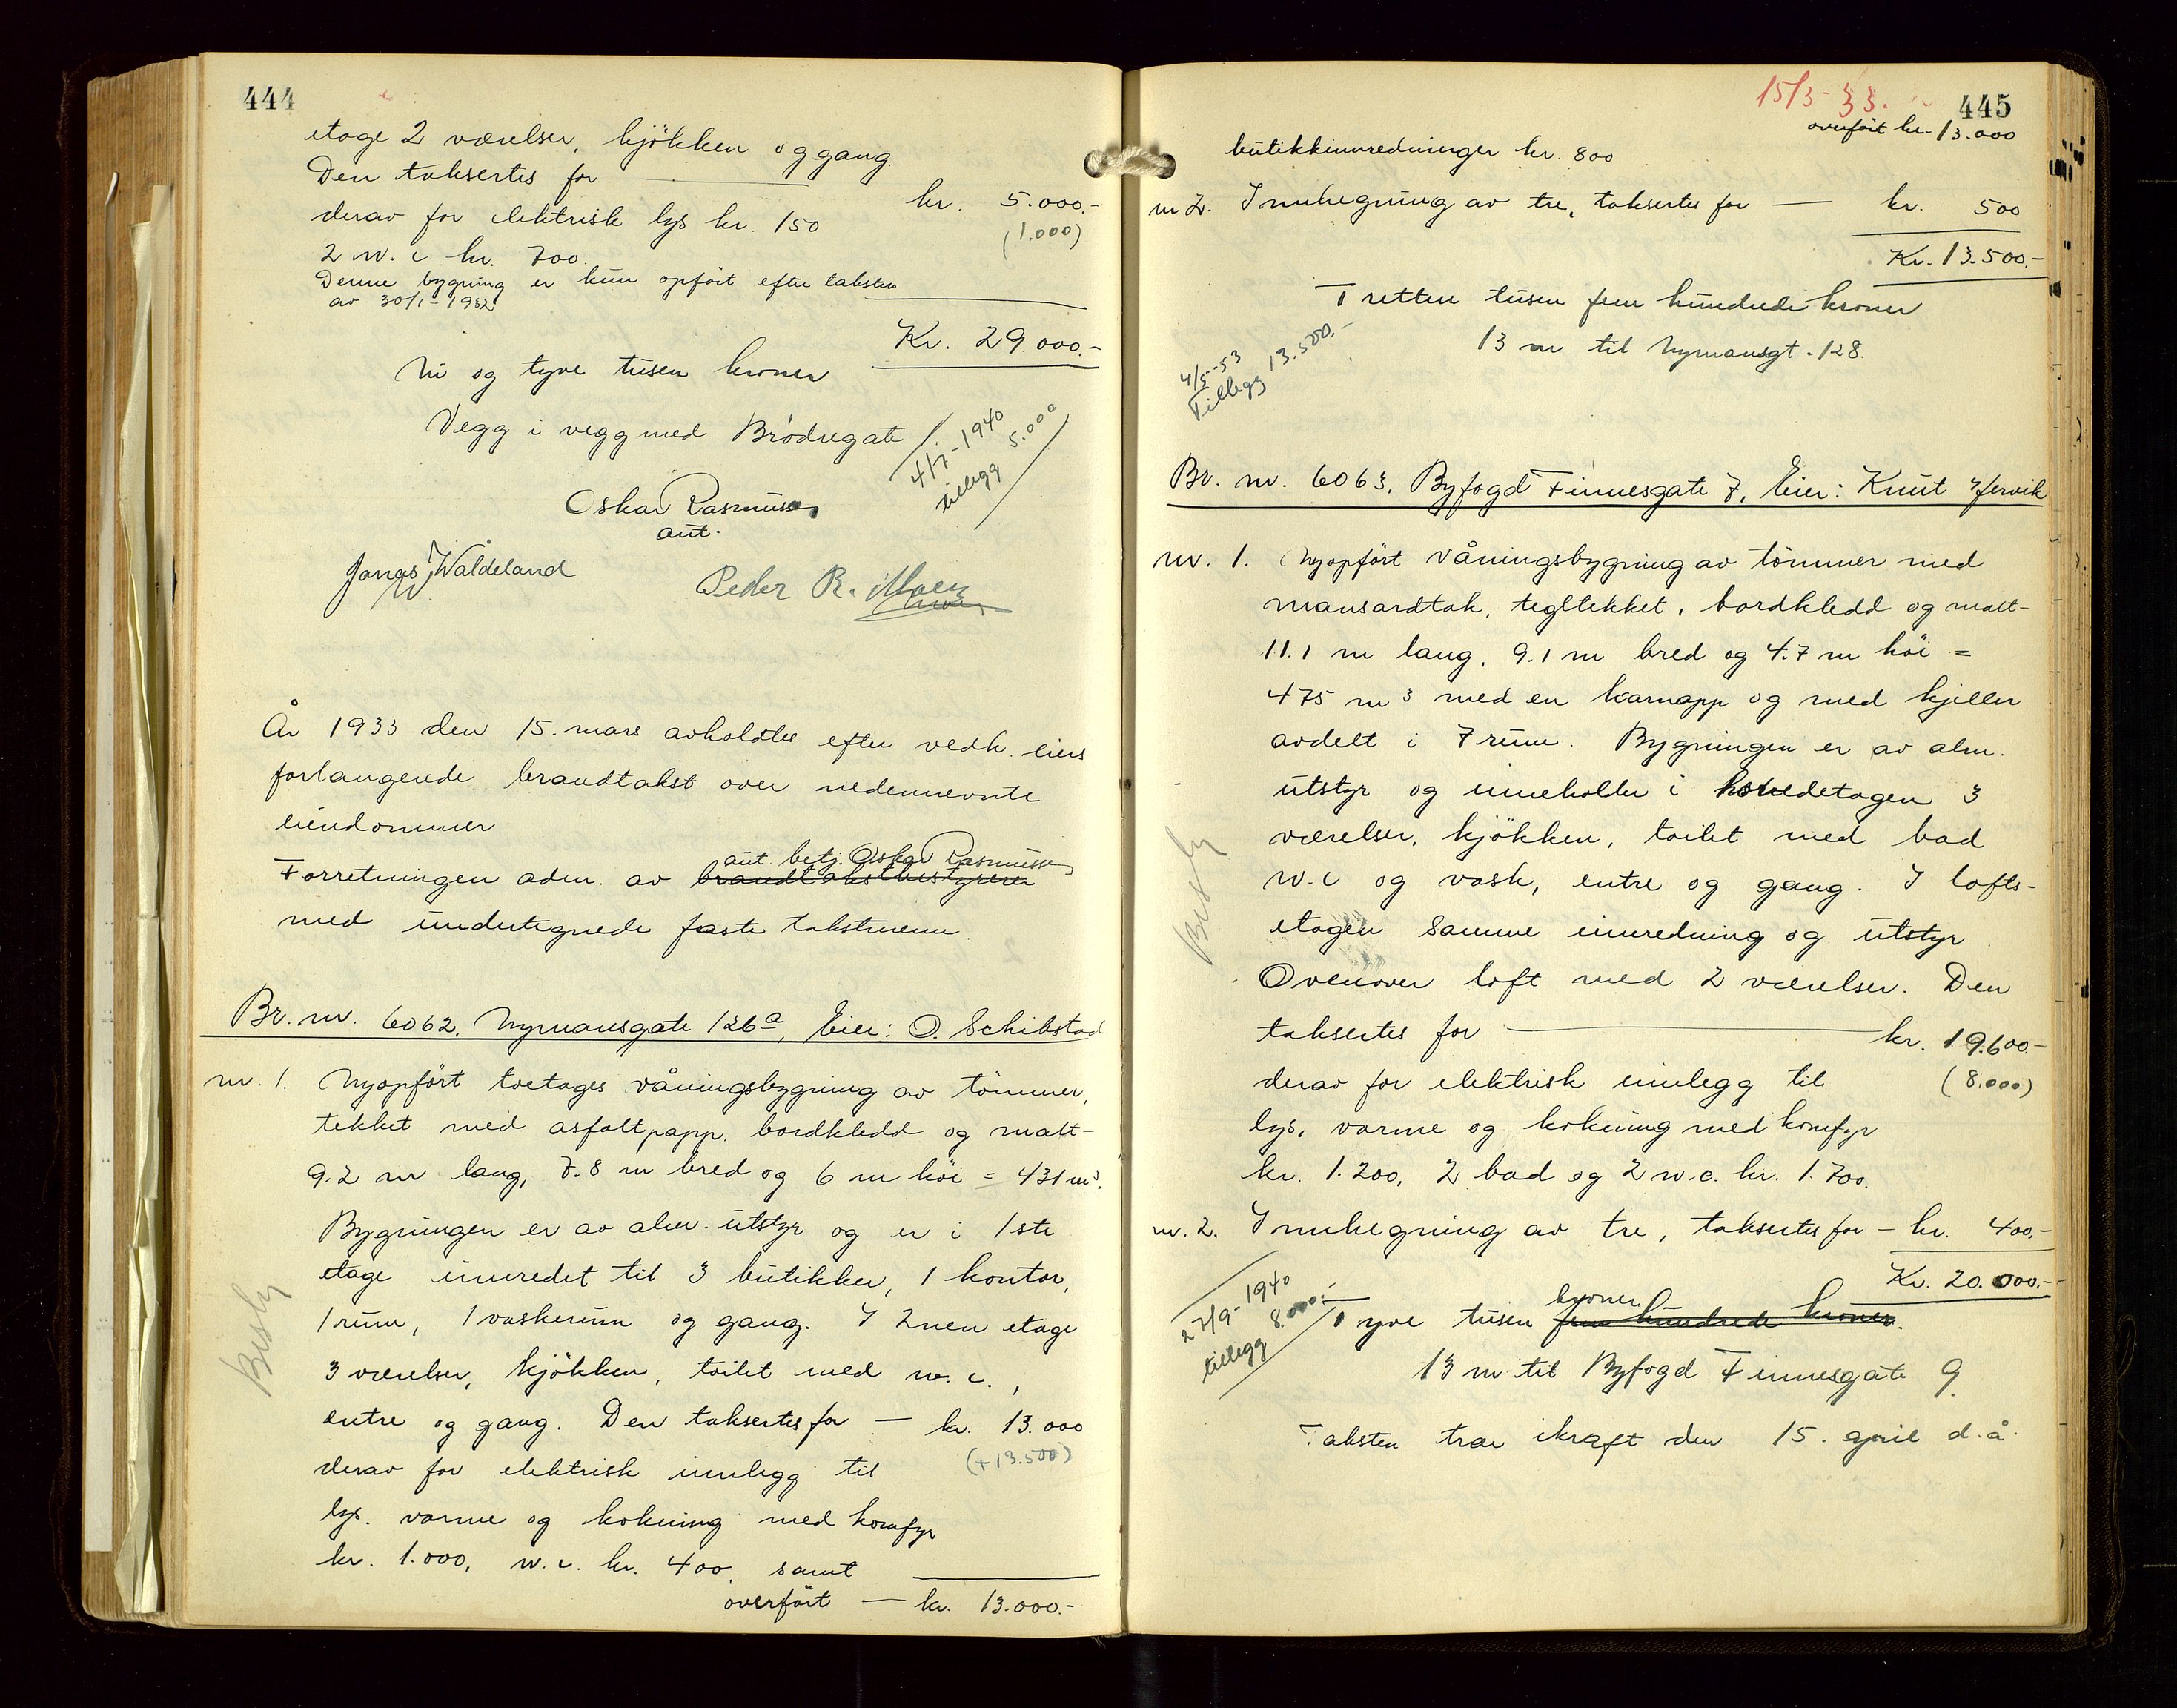 444
etage 2 værelser, kjökken og gang.
Den taksertes for — kr. 5.000.-
derav for elektrisk lys kr. 150 (1.000)
2 w.c kr. 700.
Denne bygning er kun opfört efter taksten
av 30/1-1932
Kr. 29.000.-
Ni og tyve tusen kroner
Vegg i vegg med Brödregate
4/7-1940
tillegg 5.000
Oskar Rasmussen
aut.
Jonas Waldeland Peder R. Moen
År 1933 den 15. mars avholdtes efter vedk. eiers
forlangende brandtakst over nedennevnte
eiendommer
aut. betj. Oskar Rasmussen
Forretningen adm. av brandtakstbestyreren
med undertegnede faste takstmenn.
Br. nr. 6062. Nymansgate 126a, Eier: O. Schibstad
nr. 1. Nyopfört toetages våningsbygning av tömmer,
tekket med asfaltpapp. bordkledd og malt-
9.2 m lang, 7.8 m bred og 6 m höi = 431 m3.
Bygningen er av alm. utstyr og er i 1ste
etage innredet til 3 butikker, 1 kontor,
1 rum, 1 vaskerum og gang. I 2nen etage
3 værelser, kjökken, toilet med w.c.,
entre og gang. Den taksertes for — kr. 13.000
derav for elektrisk innlegg til (+13.500)
lys. varme og kokning med komfyr
kr. 1.000, w.c. kr. 400, samt
overfört — kr. 13.000.-
15/3-33.
445
overfört kr. 13.000
butikkinnredninger kr. 800
nr 2. Innhegning av tre, taksertes for — kr. 500
Kr. 13.500.-
Tretten tusen fem hundrede kroner
13 m til Nymansgt. 128.
4/5-53
Tillegg 13.500.-
Br. nr. 6063. Byfogd Finnesgate 7. Eier: Knut Gjervik
nr. 1. Nyopfört våningsbygning av tömmer med
mansardtak, tegltekket, bordkledd og malt-
11.1 m lang, 9.1 m bred og 4.7 m höi =
475 m3 med en karnapp og med kjeller
avdelt i 7 rum. Bygningen er av alm.
utstyr og inneholder i hovedetagen 3
værelser, kjökken, toilet med bad
w.c og vask, entre og gang. I lofts-
etagen samme innredning og utstyr.
Ovenover loft med 2 værelser. Den
taksertes for — kr. 19.600.-
derav for elektrisk innlegg til (8.000)
lys, varme og kokning med komfyr
kr. 1.200, 2 bad og 2 w.c. kr. 1.700.
nr. 2. Innhegning av tre, taksertes for - kr. 400,-
Kr. 20.000.-
kroner
Tyve tusen fem hundrede kroner.
27/9-1940
tillegg 8.000.-
13 m til Byfogd Finnesgate 9.
Taksten trær ikraft den 15. april d.å.